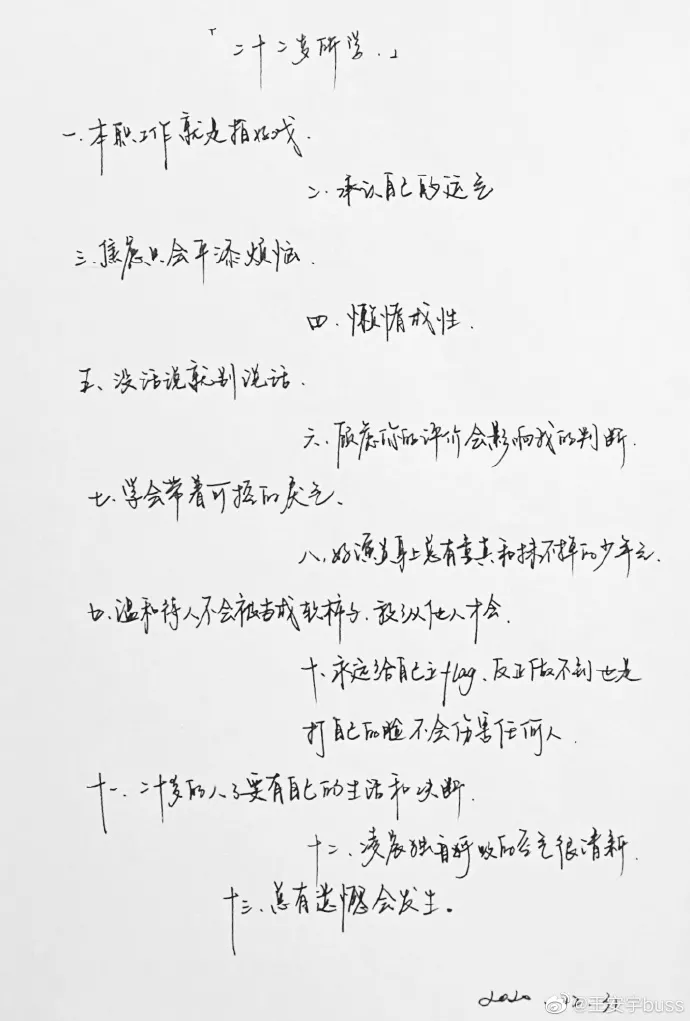 「二十二岁所学.」
一.本职工作就是拍好戏.
二.承认自己的运气
三.焦虑只会平添烦恼.
四.懒惰成性.
五、没话说就别说话.
六.顾虑你的评价会影响我的判断.
七.学会带着可控的戾气、
八.好演员身上总有童真和抹不掉的少年气.
九.温和待人不会被当成软柿子.放纵他人才会.
十、永远给自己立flag.反正做不到也是
打自己的脸不会伤害任何人.
十一.二十岁的人了要有自己的生活和决断.
十二、凌晨独自呼吸的空气很清新.
十三.总有遗憾会发生。
2020.
@王安宇buss